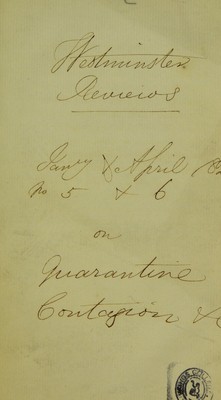 Westminster
Reviews
Jany & April
No 5 & 6
on
Quarantine
Contagion &